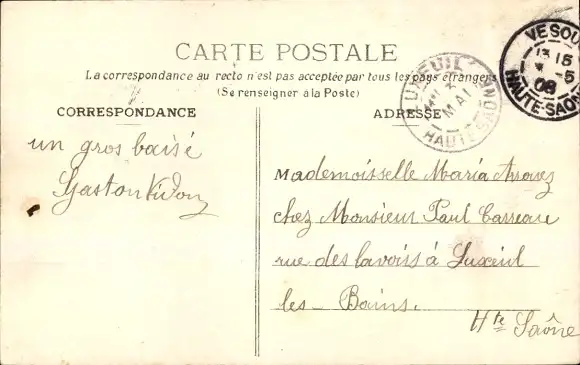 CARTE POSTALE
La correspondance au recto n'est pas acceptée par tous les pays étrangers
(Se renseigner à la Poste)
CORRESPONDANCE
ADRESSE
LUXEUIL
MAI
HAUTE-SAONE
VESOUL
15
5
08
HAUTE-SAONE
un gros baisé
Gaston
Mademoiselle Maria
chez Monsieur Paul Carreau
rue des lavoirs à Luxeuil
les - Bains.
Hte Saône